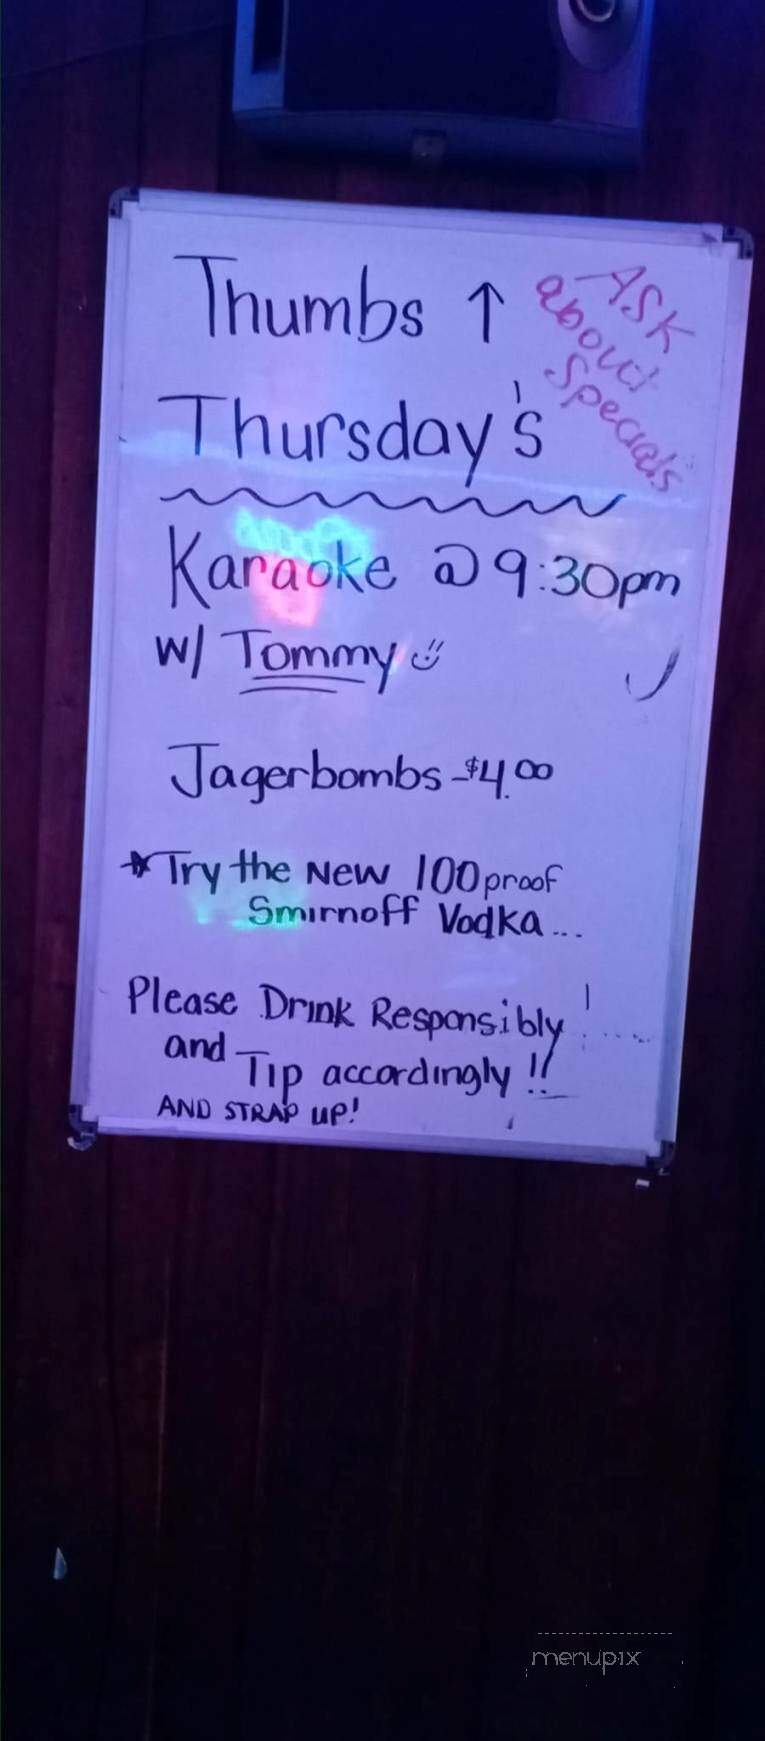 Thumbs ↑
Thursday's
ASK
about
Specials
Karaoke @ 9:30pm
w/ Tommy
Jagerbombs - $4.00
*Try the New 100 proof
Smirnoff Vodka...
Please Drink Responsibly!
and Tip accordingly!!
AND STRAP UP!
menupix